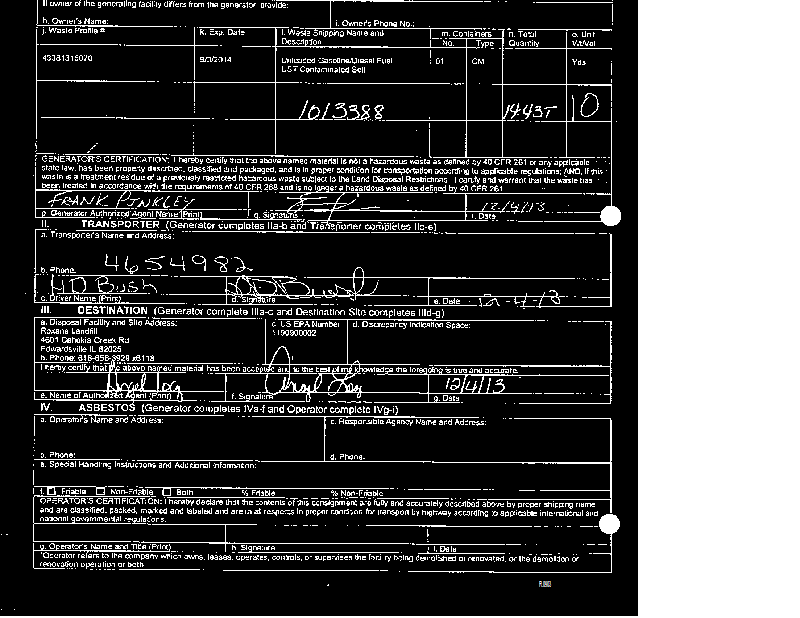 If owner of the generating facility differs from the generator, provide:
h. Owner's Name: i. Owner's Phone No.:
j. Waste Profile # k. Exp. Date l. Waste Shipping Name and Description m. Containers No. Type n. Total Quantity o. Unit Wt/Vol
9/3/2014 Unleaded Gasoline/Diesel Fuel UST Contaminated Soil 01 CM Yds
1013388 14.43T 10
GENERATOR'S CERTIFICATION: I hereby certify that the above named material is not a hazardous waste as defined by 40 CFR 261 or any applicable
state law, has been properly described, classified and packaged, and is in proper condition for transportation according to applicable regulations; AND, if this
waste is a treatment residue of a previously restricted hazardous waste subject to the Land Disposal Restrictions. I certify and warrant that the waste has
been treated in accordance with the requirements of 40 CFR 268 and is no longer a hazardous waste as defined by 40 CFR 261
FRANK PINKLEY 12/4/13
p. Generator Authorized Agent Name (Print) q. Signature r. Date
II. TRANSPORTER (Generator completes IIa-b and Transporter completes IIc-e)
a. Transporter's Name and Address:
4654982
b. Phone:
HD Bush HD Bush 12-4-13
c. Driver Name (Print) d. Signature e. Date
III. DESTINATION (Generator complete IIIa-c and Destination Site completes IIId-g)
a. Disposal Facility and Site Address: c. US EPA Number d. Discrepancy Indication Space:
Roxana Landfill
4601 Cahokia Creek Rd
Edwardsville IL 62025
b. Phone: 618-656-6929 x6118
I hereby certify that the above named material has been accepted and to the best of my knowledge the foregoing is true and accurate.
12/4/13
e. Name of Authorized Agent (Print) f. Signature g. Date
IV. ASBESTOS (Generator completes IVa-f and Operator complete IVg-i)
a. Operator's Name and Address: c. Responsible Agency Name and Address:
b. Phone: d. Phone:
e. Special Handling Instructions and Additional Information:
f. Friable Non-Friable Both % Friable % Non-Friable
OPERATOR'S CERTIFICATION: I hereby declare that the contents of this consignment are fully and accurately described above by proper shipping name
and are classified, packed, marked and labeled and are in all respects in proper condition for transport by highway according to applicable international and
national governmental regulations.
g. Operator's Name and Title (Print) h. Signature i. Date
*Operator refers to the company which owns, leases, operates, controls, or supervises the facility being demolished or renovated, or the demolition or
renovation operation or both